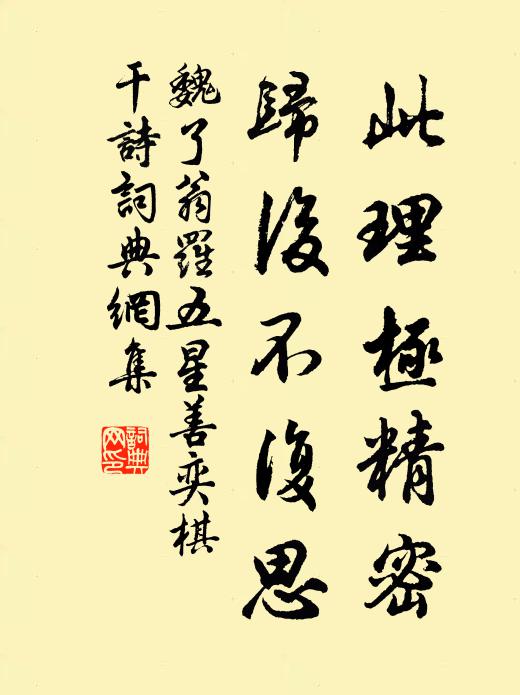 此理極精密
歸後不復思
魏了翁羅五星善奕棋
于詩詞典網集
詞典网印